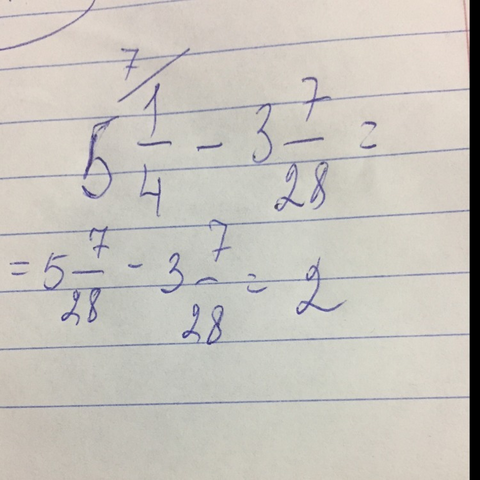 7/
5 1/4 - 3 7/28 =
= 5 7/28 - 3 7/28 = 2